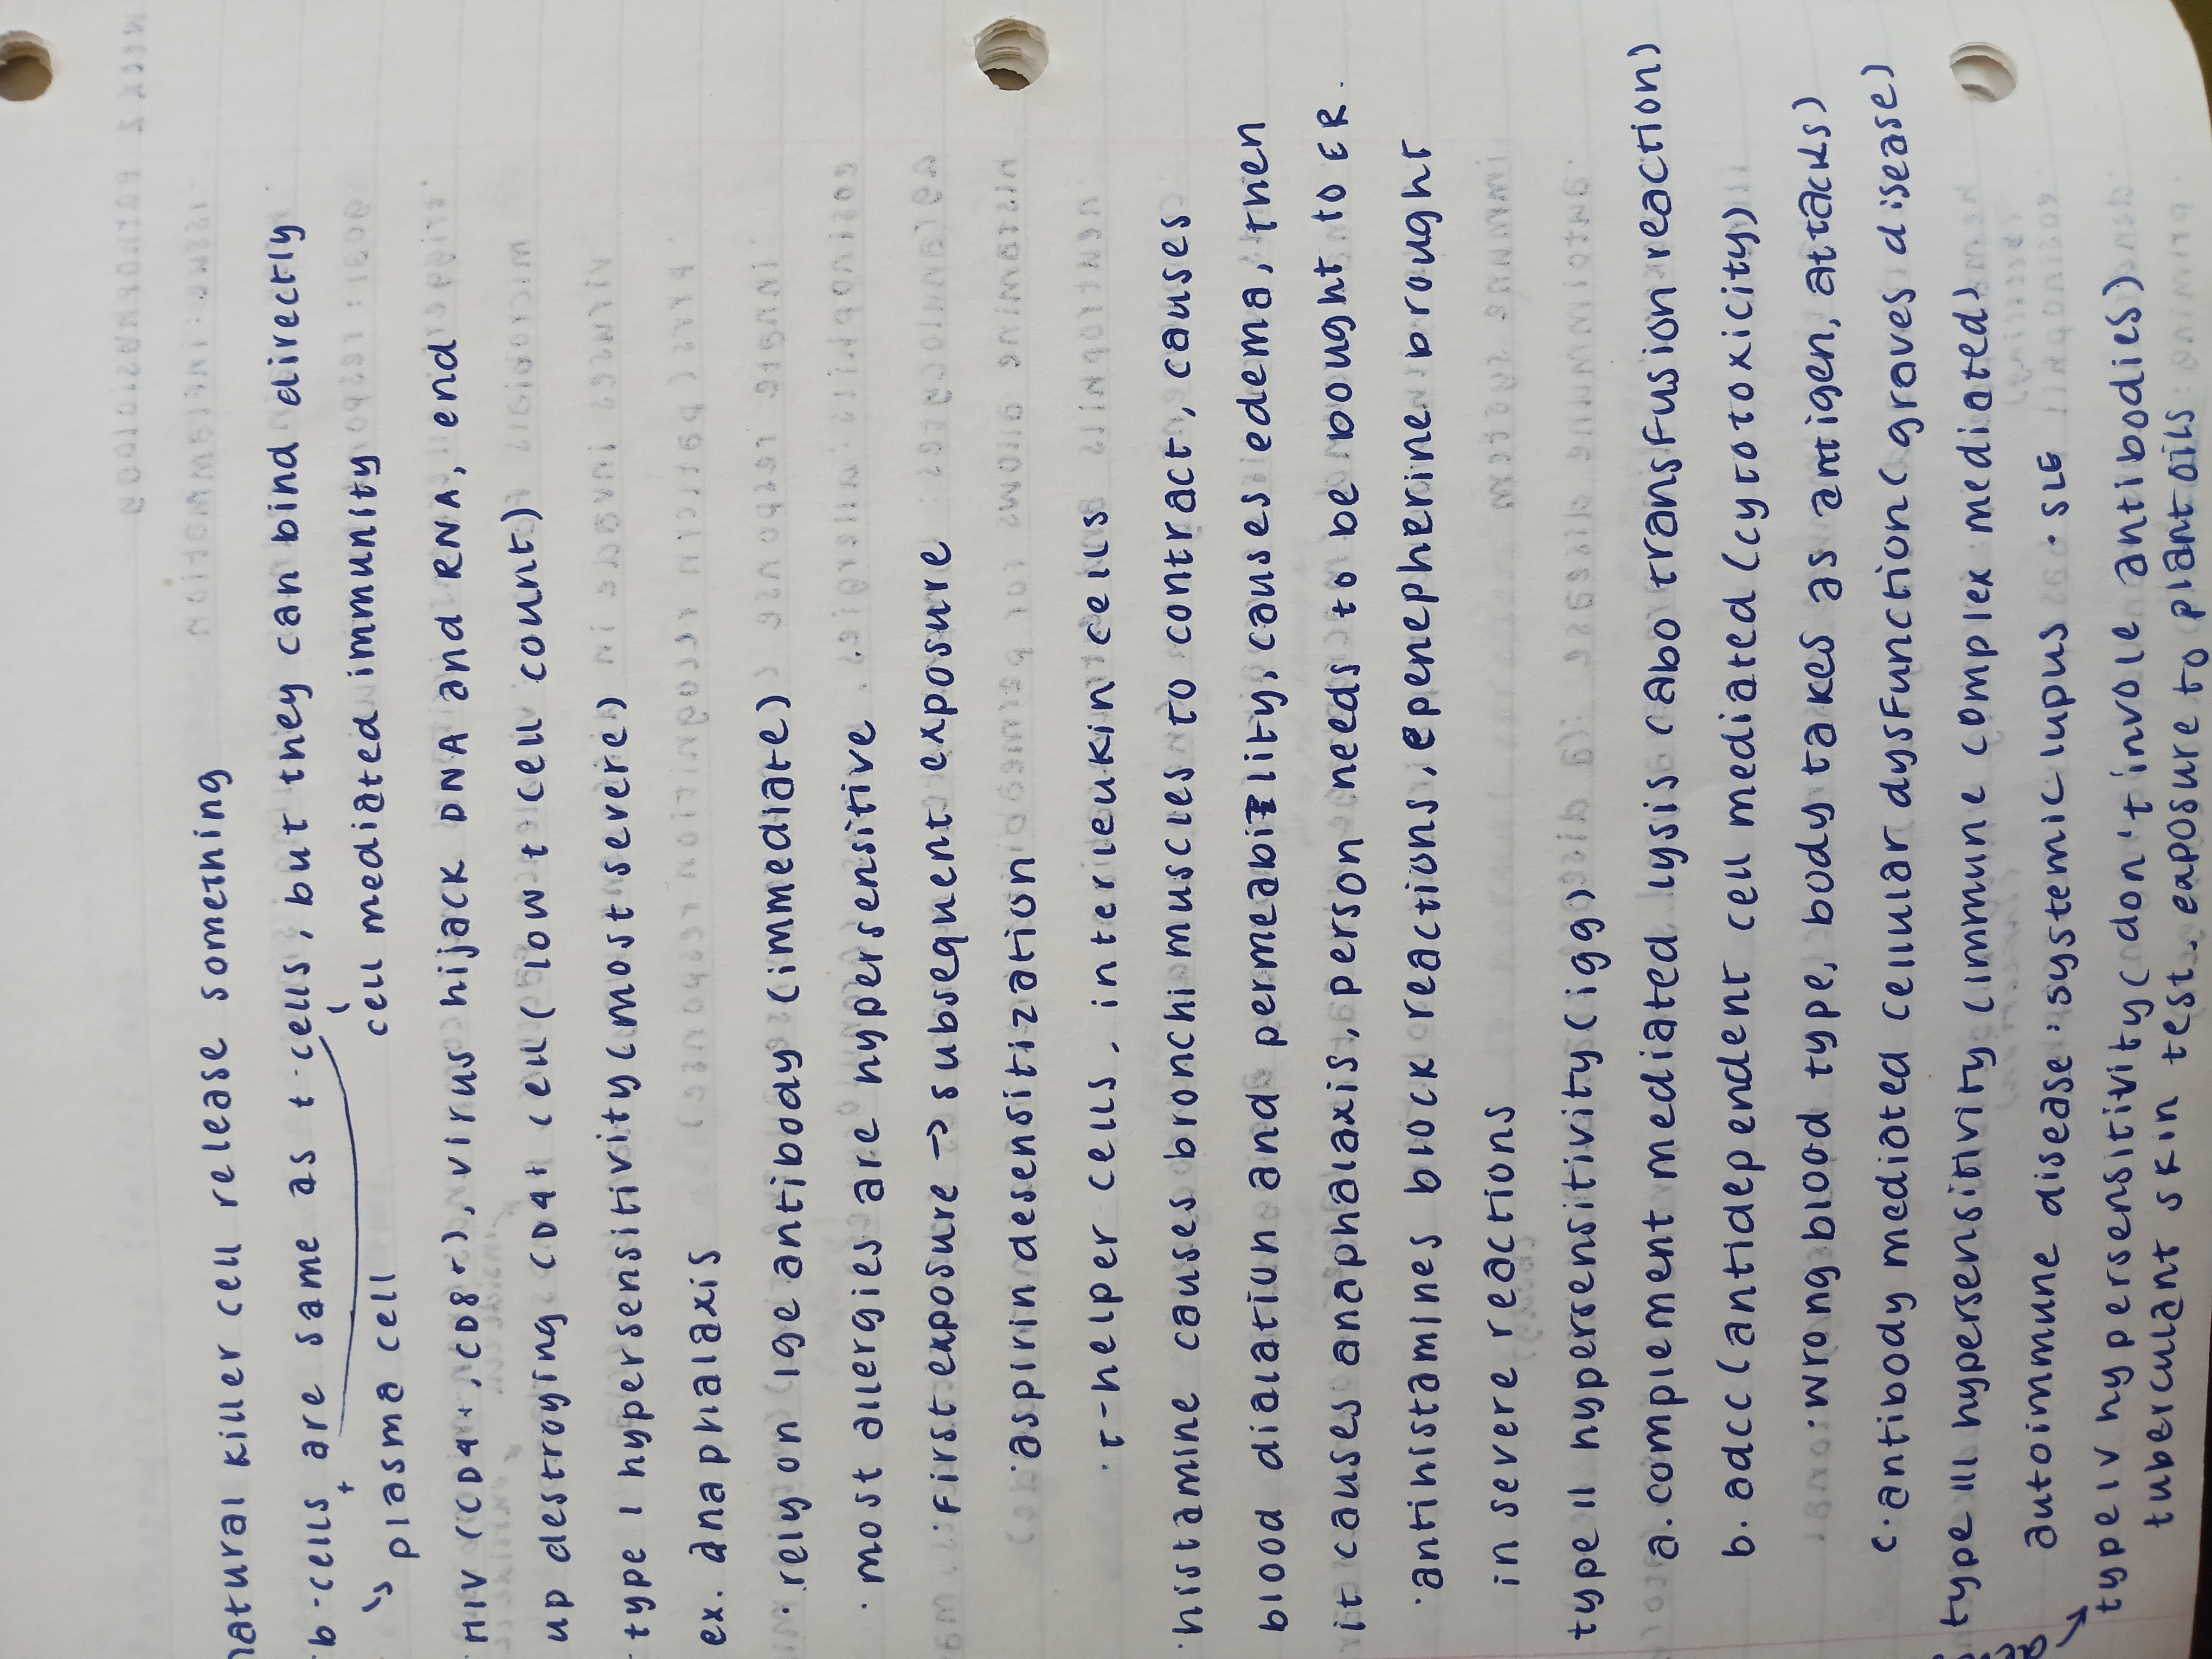 natural killer cell release something
· b-cells are same as t-cells, but they can bind directly
↳ plasma cell
cell mediated immunity
· HIV (CD4+, CD8+), virus hijack DNA and RNA, end
up destroying CD4+ cell (low t cell count)
· type I hypersensitivity (most severe)
ex. anaphalaxis
· rely on ige antibody (immediate)
· most allergies are hypersensitive
· First exposure → subsequent exposure
· aspirin desensitization
· t-helper cells, interleukin cells
· histamine causes bronchi muscles to contract, causes
blood dialation and permeability, causes edema, then
it causes anaphalaxis, person needs to be bought to ER.
· antihistamines block reactions, epenepherine brought
in severe reactions
type II hypersensitivity (igg)
a. complement mediated lysis (abo transfusion reaction)
b. adcc (antidependent cell mediated (cytotoxicity)
· wrong blood type, body takes as antigen, attacks)
c. antibody mediated cellular dysfunction (graves disease)
type III hypersensitivity (immune complex mediated)
autoimmune disease: systemic lupus · SLE
→ type IV hypersensitivity (don't invole antibodies)
tuberculant skin test, eaposure to plant oils